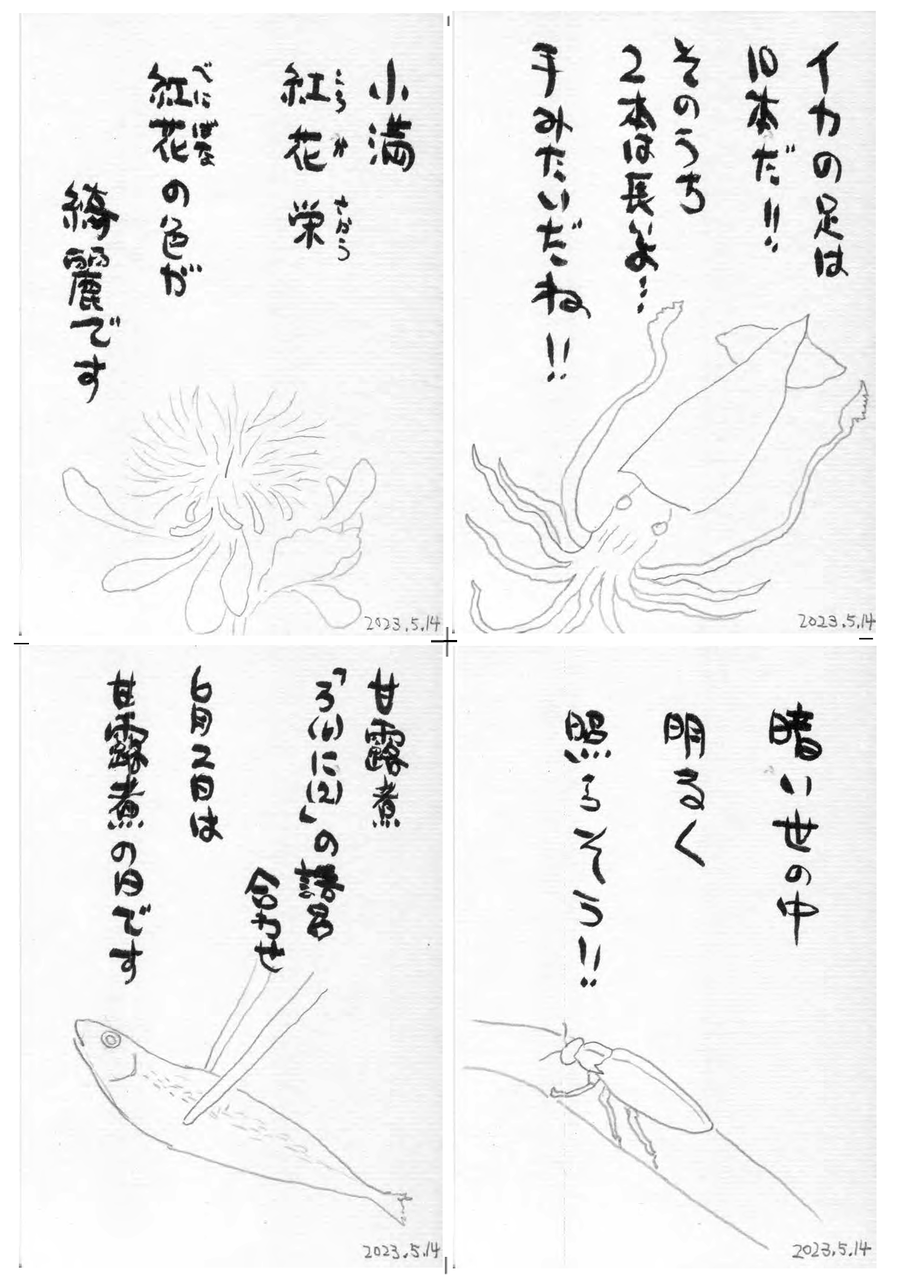 イカの足は
10本だ!!
そのうち
2本は長いよ…
手みたいだね!!
2023.5.14
小満
紅花栄
こうかさかう
紅花の色が
べにばな
綺麗です
2023.5.14
暗い世の中
明るく
照らそう!!
2023.5.14
甘露煮
「ろ(6)に(2)」の語呂
合わせ
6月2日は
甘露煮の日です
2023.5.14